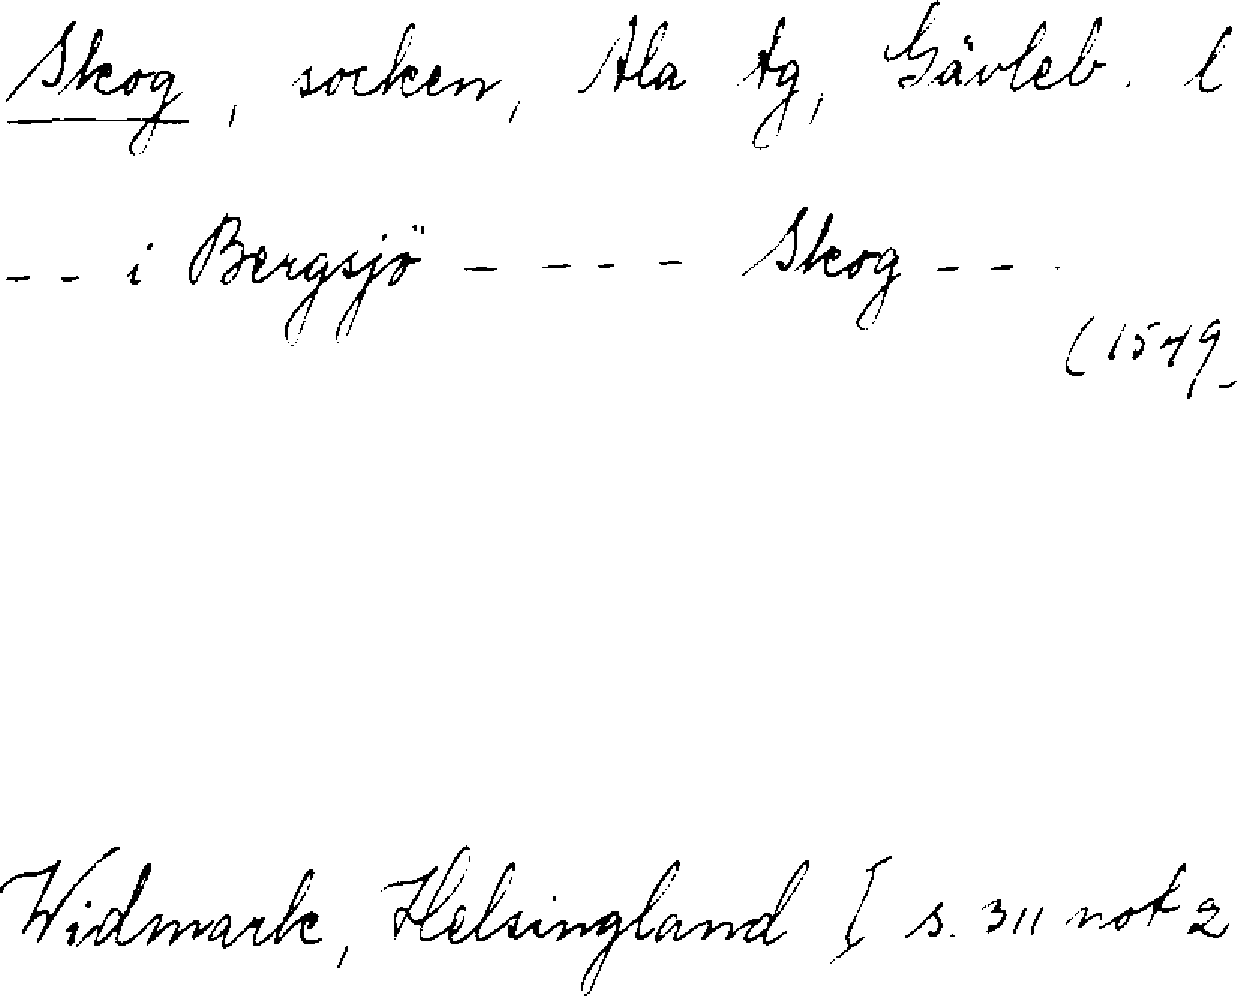 Skog, socken, Ala tg, Gävleb. l
-- i Bergsjö - --- Skog ---
(1549-
Widmark, Helsingland I s. 311 not 2